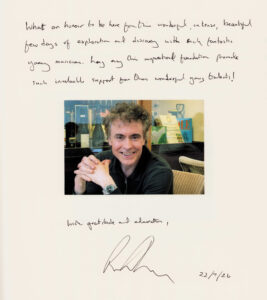 What an honour to be here for these wonderful, intense, beautiful
few days of exploration and discovery with such fantastic
young musicians. Long may this important foundation provide
such invaluable support for these wonderful young artists!
With gratitude and admiration,